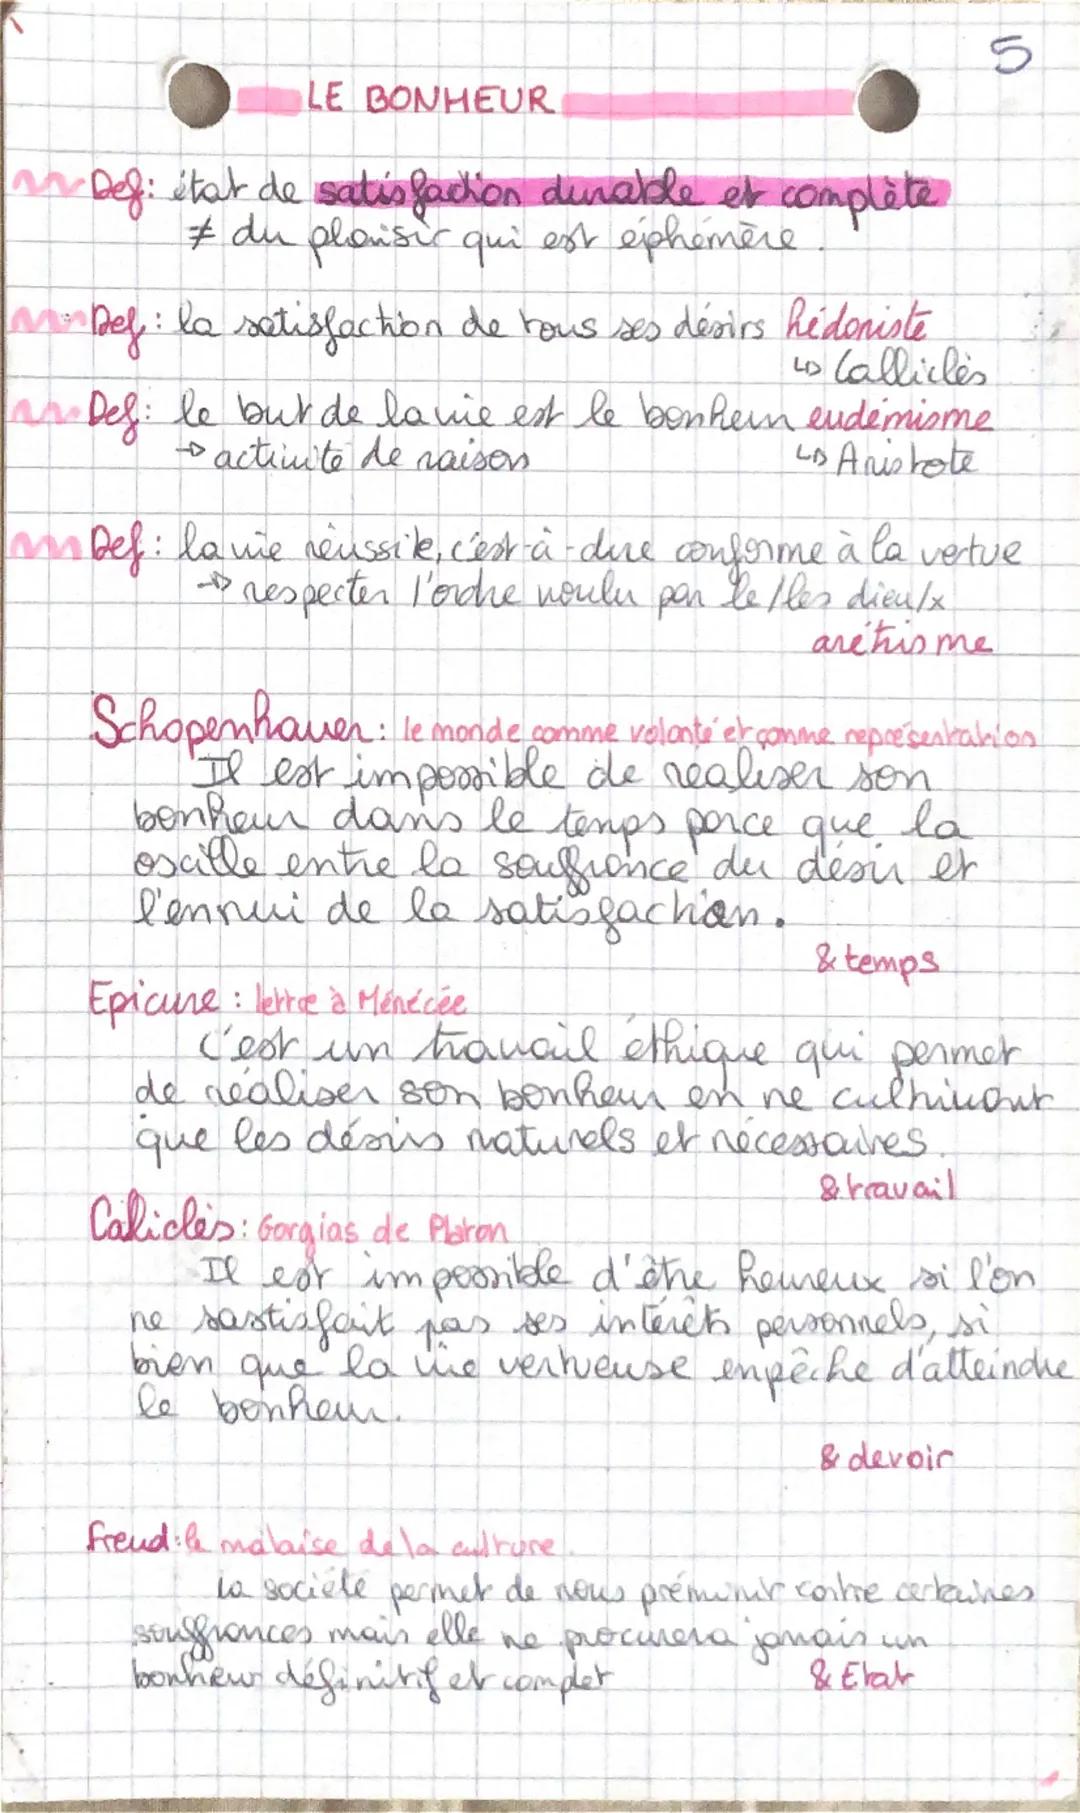 5
LE BONHEUR
Def: état de satisfaction durable et complète
≠ du plaisir qui est éphémère.
Def: la satisfaction de tous ses désirs hédoniste
↳ Calliclès
Def: le but de la vie est le bonheur eudémisme
→ activité de raison ↳ Aristote
Def: la vie réussite, c'est-à-dire conforme à la vertue
→ respecter l'ordre voulu par le/les dieu/x
aréthisme
Schopenhauer: le monde comme volonté et comme représentation
Il est impossible de réaliser son
bonheur dans le temps parce que la
oscille entre la souffrance du désir et
l'ennui de la satisfaction.
& temps
Epicure: lettre à Ménécée
C'est un travail éthique qui permet
de réaliser son bonheur en ne cultivant
que les désirs naturels et nécessaires.
& travail
Caliclès: Gorgias de Platon
Il est impossible d'être heureux si l'on
ne sastisfait pas ses intérêts personnels, si
bien que la vie vertueuse enpêche d'atteindre
le bonheur.
& devoir
Freud: le malaise de la culture.
La société permet de nous prémunir contre certaines
souffrances mais elle ne procurera jamais un
bonheur définitif et complet & Etat